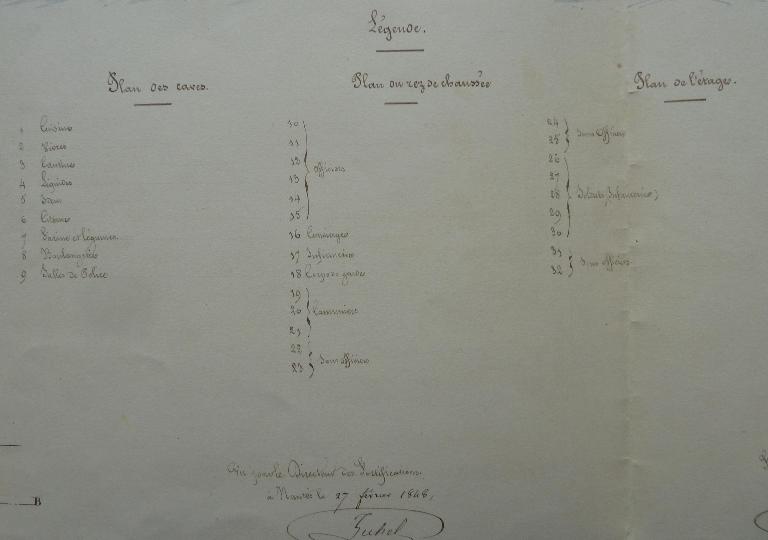 Légende.
Plan des caves.
1 Cuisine
2 Vivres
3 Cantine
4 Liquides
5 Bois
6 Citerne
7 Farine et légumes
8 Boulangerie
9 Salles de Police
Plan du rez de chaussée
10
11
12
13
14
15
Officiers
16 Concierge
17 Infirmerie
18 Corps de garde
19
20
21
Canonniers
22
23
Sous officiers
Plan de l'étage.
24
25
Sous officiers
26
27
28
29
30
Soldats, Infanterie
31
32
Sous officiers
B
Vu par le Directeur des Fortifications.
à Nantes le 27 février 1848,